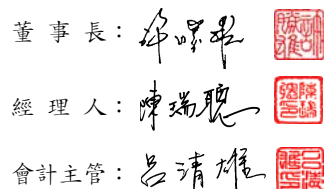 董事長：許勝雄
經理人：陳瑞聰
會計主管：呂清雄